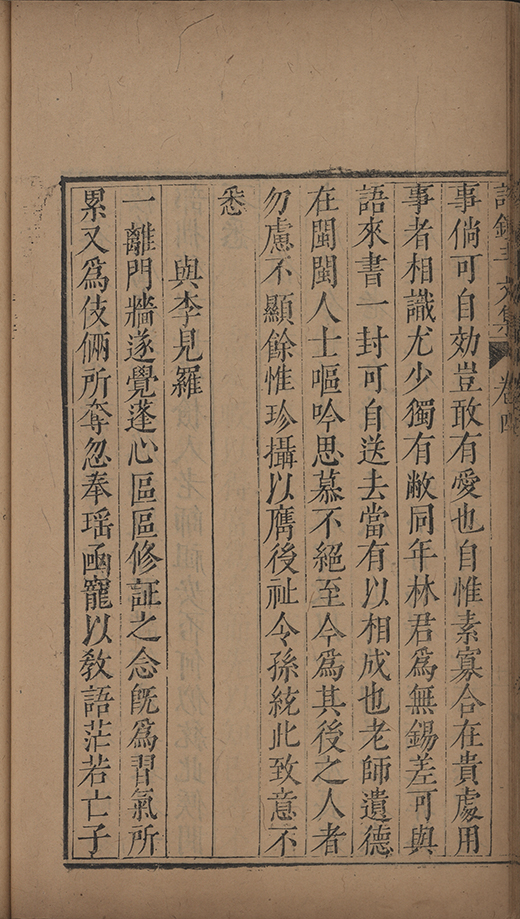 集
卷四
事倘可自効豈敢有愛也自惟素寡合在貴處用
事者相識尤少獨有敝同年林君爲無錫差可與
語來書一封可自送去當有以相成也老師遺德
在閩閩人士嘔吟思慕不絕至今爲其後之人者
勿慮不顯餘惟珍攝以膺後祉令孫統此致意不
悉
與李見羅
一離門牆遂覺蓬心區區修証之念既爲習氣所
累又爲伎倆所奪忽奉瑶函寵以敎語茫若亡子